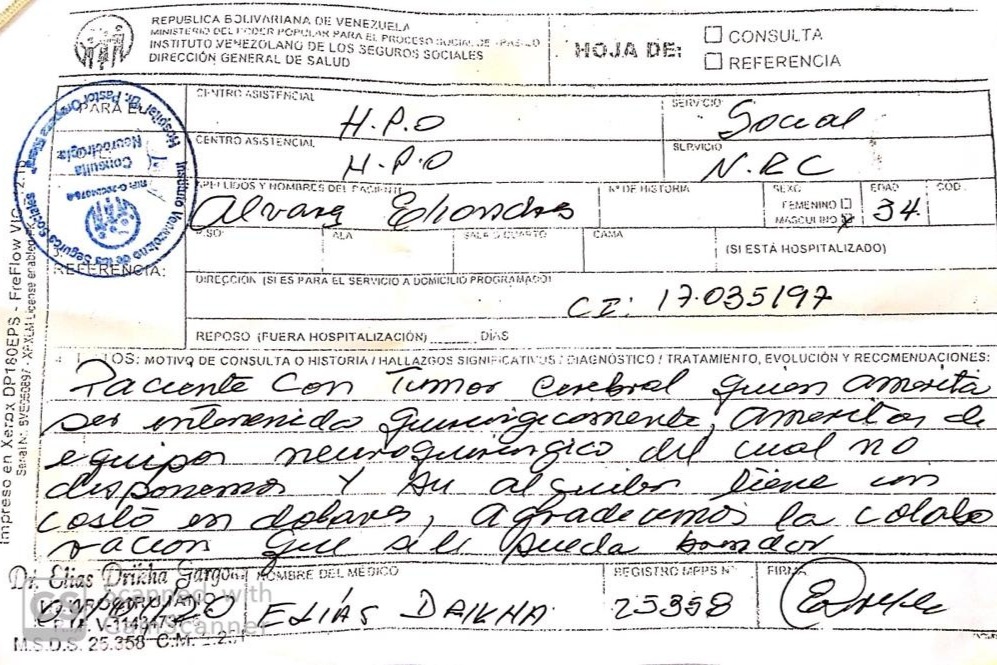 REPUBLICA BOLIVARIANA DE VENEZUELA
MINISTERIO DEL PODER POPULAR PARA EL PROCESO SOCIAL DE
INSTITUTO VENEZOLANO DE LOS SEGUROS SOCIALES
DIRECCIÓN GENERAL DE SALUD
HOJA DE:
CONSULTA
REFERENCIA
PARA EL
CENTRO ASISTENCIAL
H.P.O
SERVICIO
Social
CENTRO ASISTENCIAL
H.P.O
SERVICIO
N.RC
Consulta
Neurocirugía
Instituto Venezolano de los Seguros Sociales
REFERENCIA:
APELLIDOS Y NOMBRES DEL PACIENTE
Alvarez
Nº DE HISTORIA
SEXO
FEMENINO
MASCULINO
EDAD
34
COD.
PISO
ALA
SALA O CUARTO
CAMA
(SI ESTÁ HOSPITALIZADO)
DIRECCIÓN (SI ES PARA EL SERVICIO A DOMICILIO PROGRAMADO)
CI: 17.035197
REPOSO (FUERA HOSPITALIZACIÓN) DÍAS
MOTIVO DE CONSULTA O HISTORIA / HALLAZGOS SIGNIFICATIVOS / DIAGNÓSTICO / TRATAMIENTO, EVOLUCIÓN Y RECOMENDACIONES:
Paciente con Tumor cerebral quien amerita
ser intervenido quirurgicamente, ameritas de
equipos neuroquirurgico del cual no
disponemos y su alquiler tiene un
costo en dolares, agradecemos la colabo
racion que se le pueda brindar
Dr. Elias Drikha
NOMBRE DEL MÉDICO
ELÍAS DRIKHA
REGISTRO MPPS Nº
25358
FIRMA
M.S.D.S. 25.358 C.M.
CS Scanned with
CamScanner
Impreso en Xerox DP180EPS - FreeFlow VIC